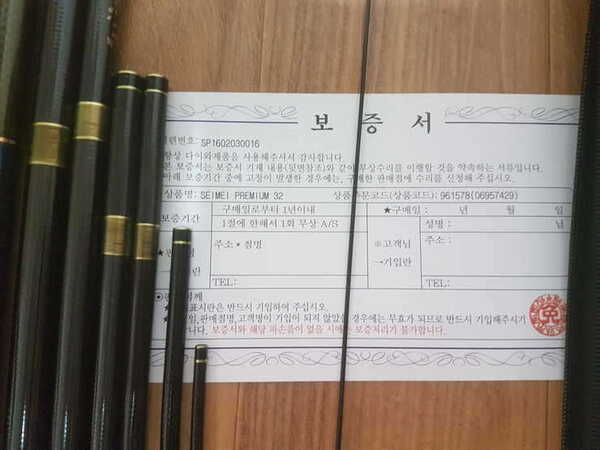 보 증 서
련번호: SP1602030016
항상 다이와제품을 사용해주셔서 감사합니다.
본 보증서는 보증서 기재 내용(뒷면참조)와 같이 무상수리를 이행할 것을 약속하는 서류입니다.
아래 보증기간 중에 고장이 발생한 경우에는, 구매한 판매점에 수리를 신청해 주십시오.
상품명: SEIMEI PREMIUM 32 상품주문코드(상품코드): 961578(06957429)
보증기간 구매일로부터 1년이내 ★구매일 : 년 월 일
1절에 한해서 1회 무상 A/S 성명 : 님
주소★점명 ※고객님 주소 :
란 →기입란
TEL: TEL:
께
표시란은 반드시 기입하여 주십시오.
일,판매점명,고객명이 기입이 되지 않았을 경우에는 무효가 되므로 반드시 기입해주시기
니다. 보증서와 해당 파손품이 없을 시에는 보증처리가 불가합니다.